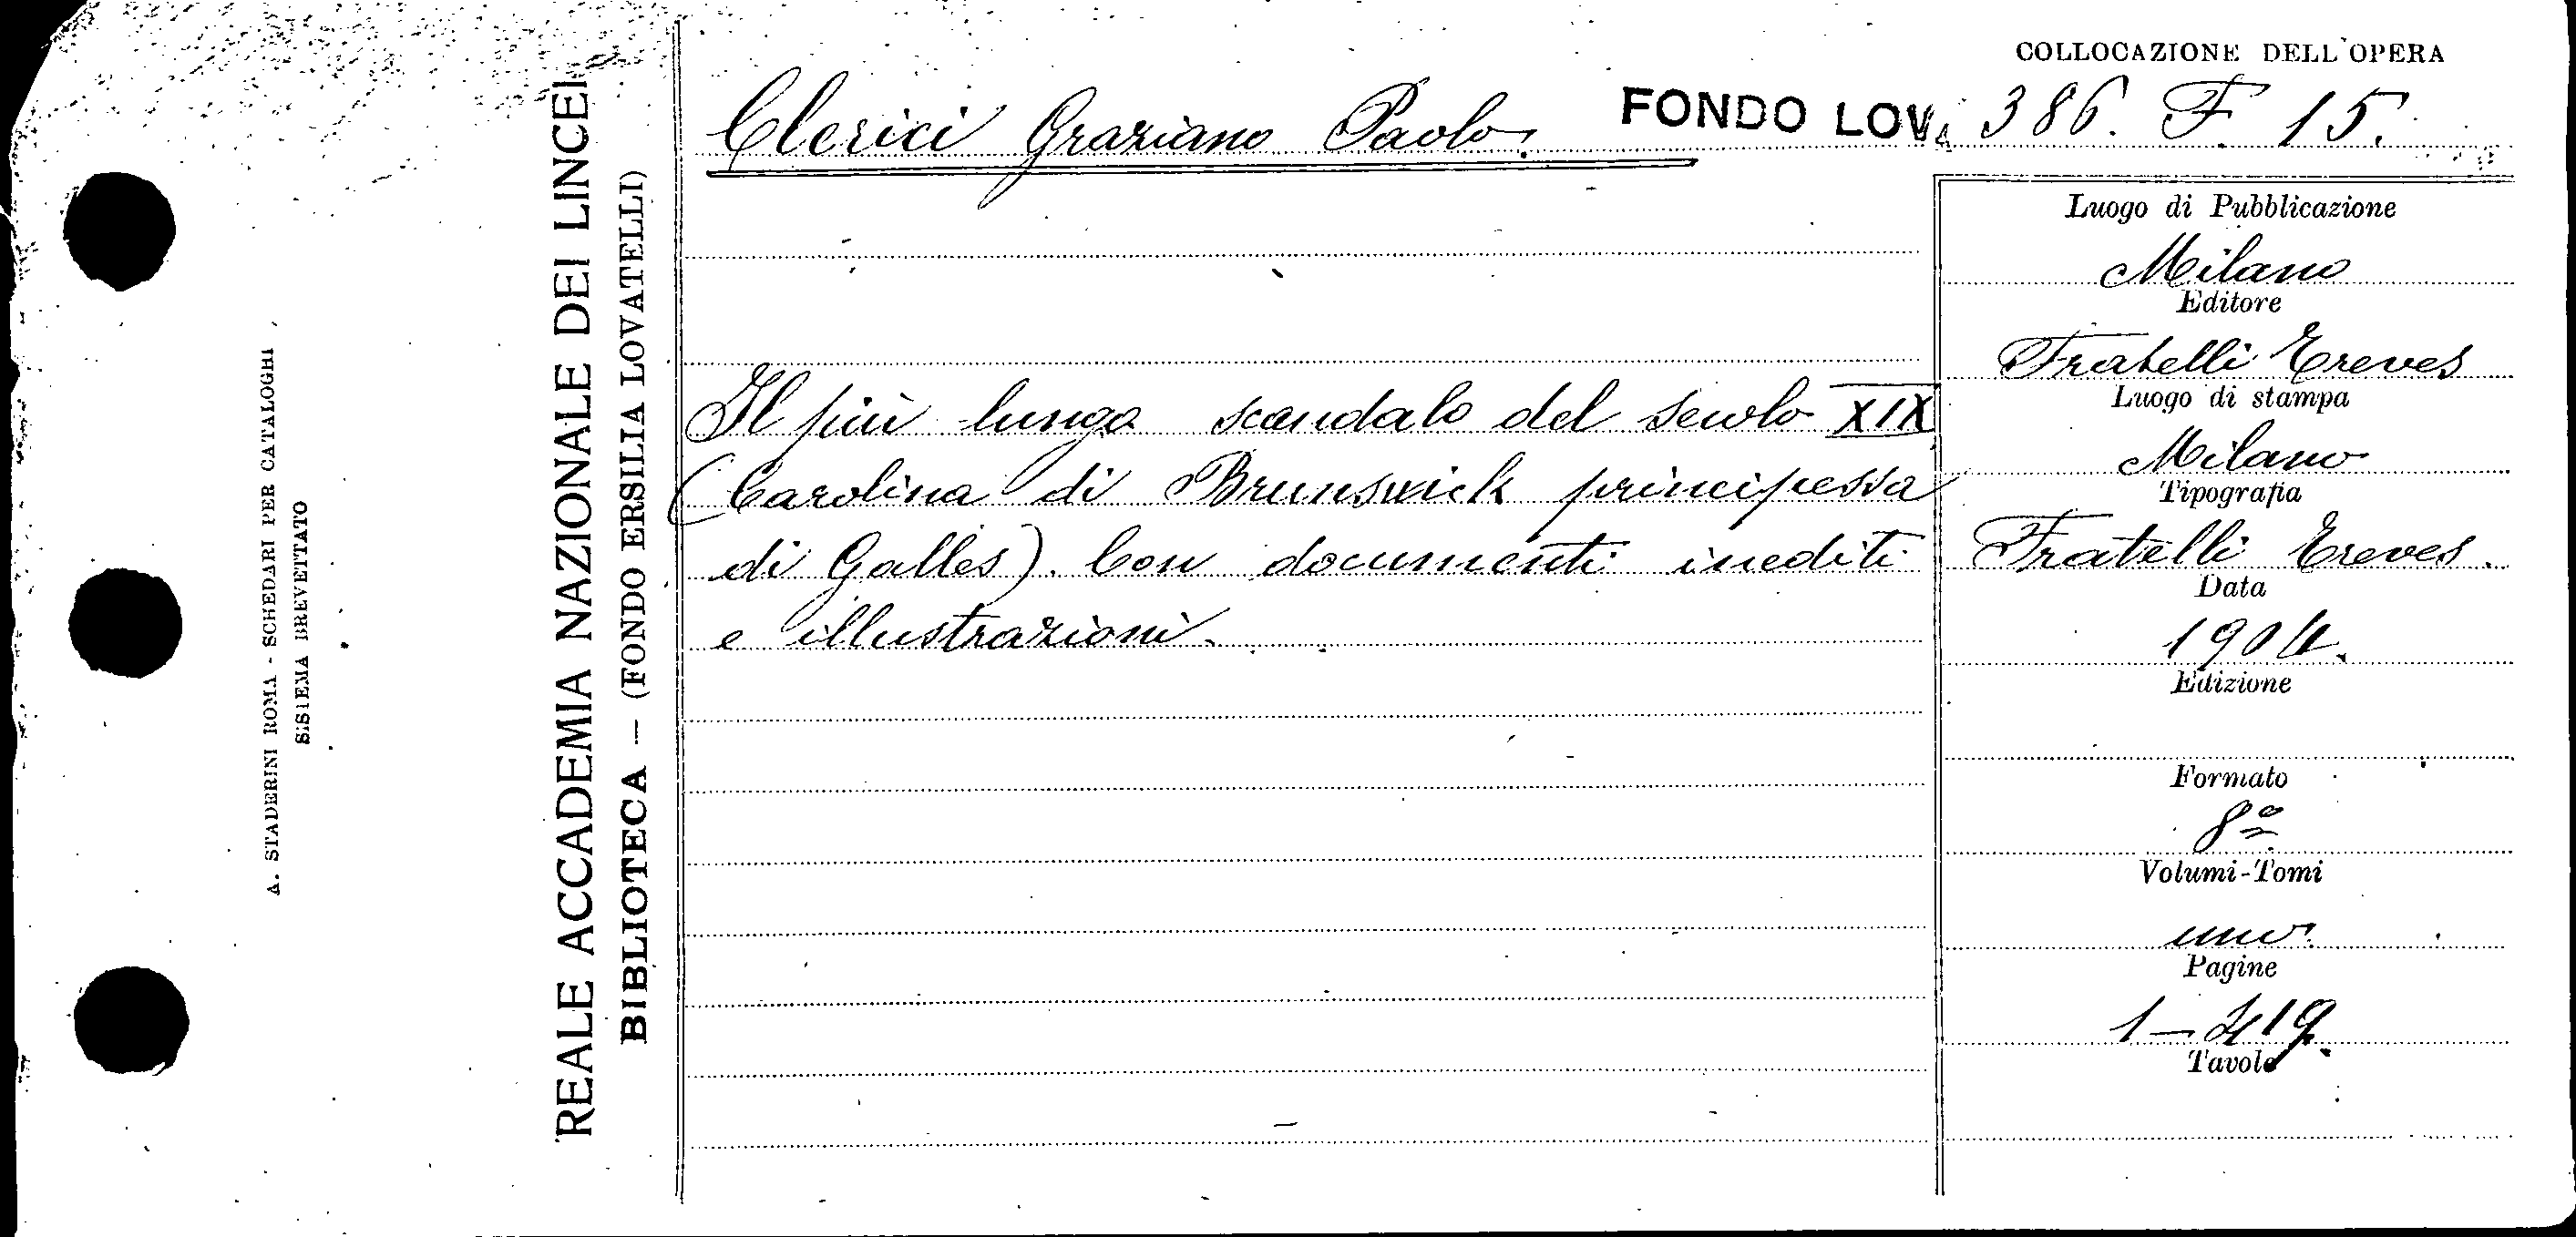 COLLOCAZIONE DELL'OPERA
Clerici Graziano Paolo. FONDO LOV. 386. F. 15.
Il più lungo scandalo del secolo XIX
(Carolina di Brunswick principessa
di Galles). Con documenti inediti
e illustrazioni.
Luogo di Pubblicazione
Milano
Editore
Fratelli Treves
Luogo di stampa
Milano
Tipografia
Fratelli Treves.
Data
1904.
Edizione
Formato
8º
Volumi-Tomi
uno.
Pagine
1-419.
Tavole
REALE ACCADEMIA NAZIONALE DEI LINCEI
BIBLIOTECA — (FONDO ERSILIA LOVATELLI)
A. STADERINI ROMA - SCHEDARI PER CATALOGHI
SISTEMA BREVETTATO